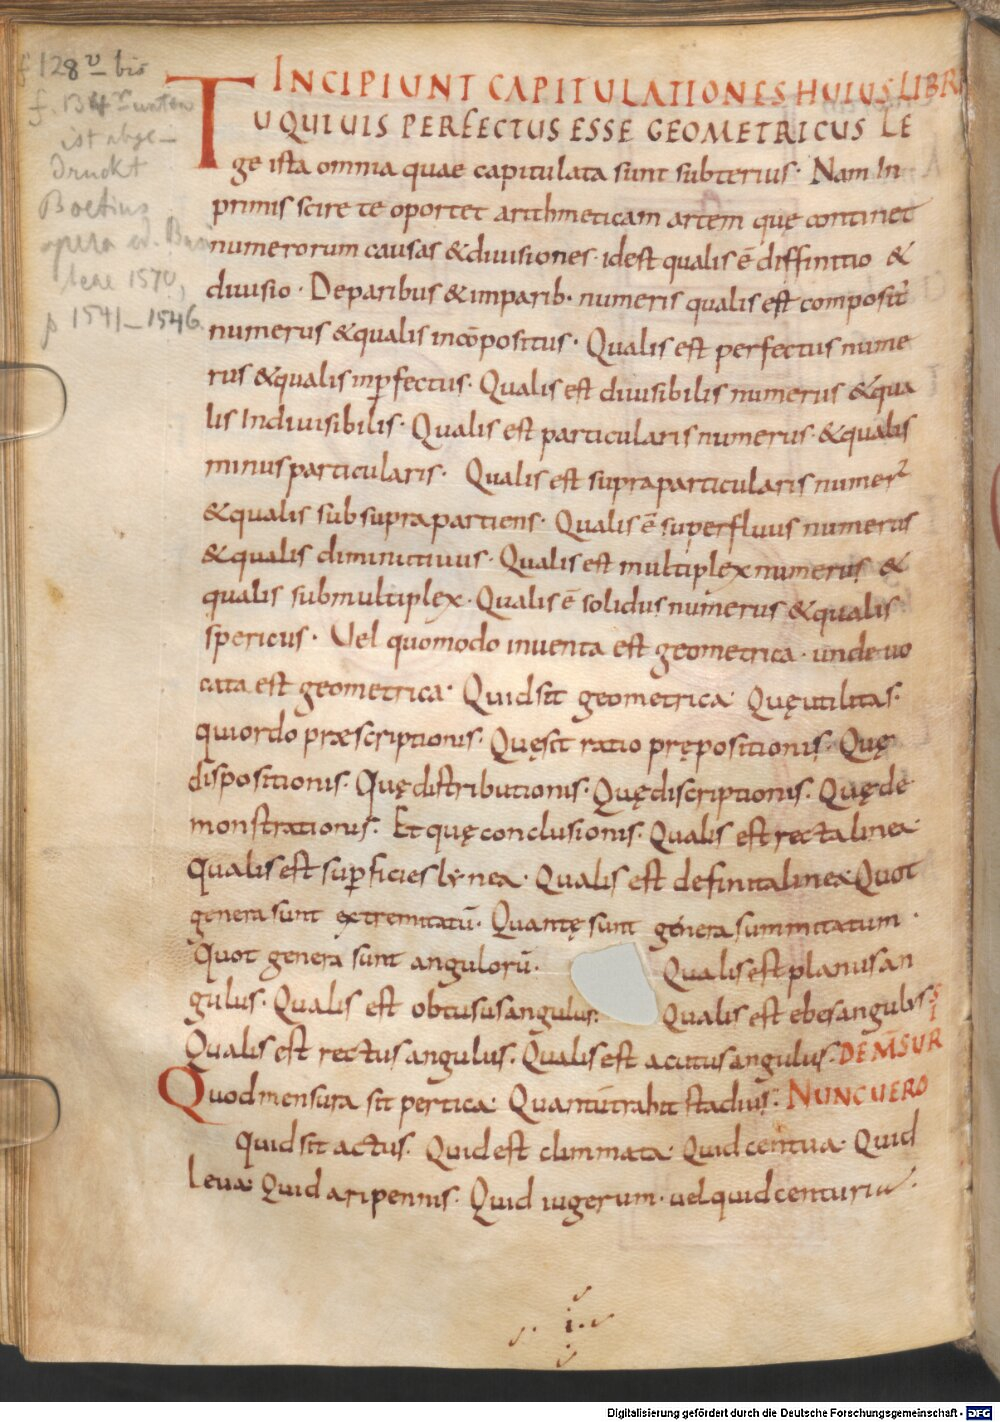 f 128v bis
f. 134r unten
ist abge-
druckt
Boetius
opera ed. Basi
leae 1570,
p 1541-1546.
INCIPIUNT CAPITULATIONES HUIUS LIBRI
TU QUI UIS PERFECTUS ESSE GEOMETRICUS LE
ge ista omnia quae capitulata sunt subterius· Nam In
primis scire te oportet arithmeticam artem quę continet
numerorum causas & diuisiones· idest qualis ē diffinitio &
diuisio· De paribus & imparib· numeris qualis est composit'
numerus & qualis incōpositus· Qualis est perfectus nume
rus & qualis inꝑfectus· Qualis est diuisibilis numerus & qua
lis Indiuisibilis· Qualis est particularis numerus· & qualis
minus particularis· Qualis est supraparticularis numer2
& qualis subsuprapartiens· Qualis ē superfluus numerus
& qualis diminutiuus· Qualis est multiplex numerus &
qualis submultiplex· Qualis ē solidus numerus & qualis
spericus· Uel quomodo inuenta est geometrica· unde uo
cata est geometrica· Quid sit geometrica· Quę utilitas·
qui ordo præscriptionis· Quę sit ratio prępositionis· Quę
dispositionis· Quę distributionis· Quę discriptionis· Quę de
monstrationis· Et quę conclusionis· Qualis est recta linea·
Qualis est suꝑficies lynea· Qualis est definita linea· Quot
genera sunt extremitatū· Quantę sunt genera summitatum·
Quot genera sunt angulorū· Qualis est planus an
gulus· Qualis est obtusus angulus· Qualis est ebes angulus
Qualis est rectus angulus· Qualis est acutus angulus· DE MSUR
Quod mensura sit pertica· Quantū trahit stadius· NUNC UERO
Quid sit actus· Quid est climmata· Quid centua· Quid
leua· Quid aripennis· Quid iugerum· uel quid centuria·
Digitalisierung gefördert durch die Deutsche Forschungsgemeinschaft - DFG